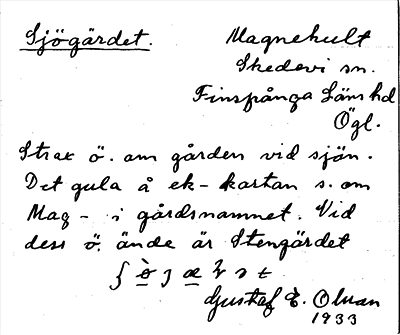 Sjögärdet.
Magnehult
Skedevi sn.
Finspånga Läns hd
Ögl.
Strax ö. om gården vid sjön.
Det gula å ek-kartan s. om
Mag- i gårdsnamnet. Vid
dess ö. ände är Stengärdet
Gustaf E.
1933